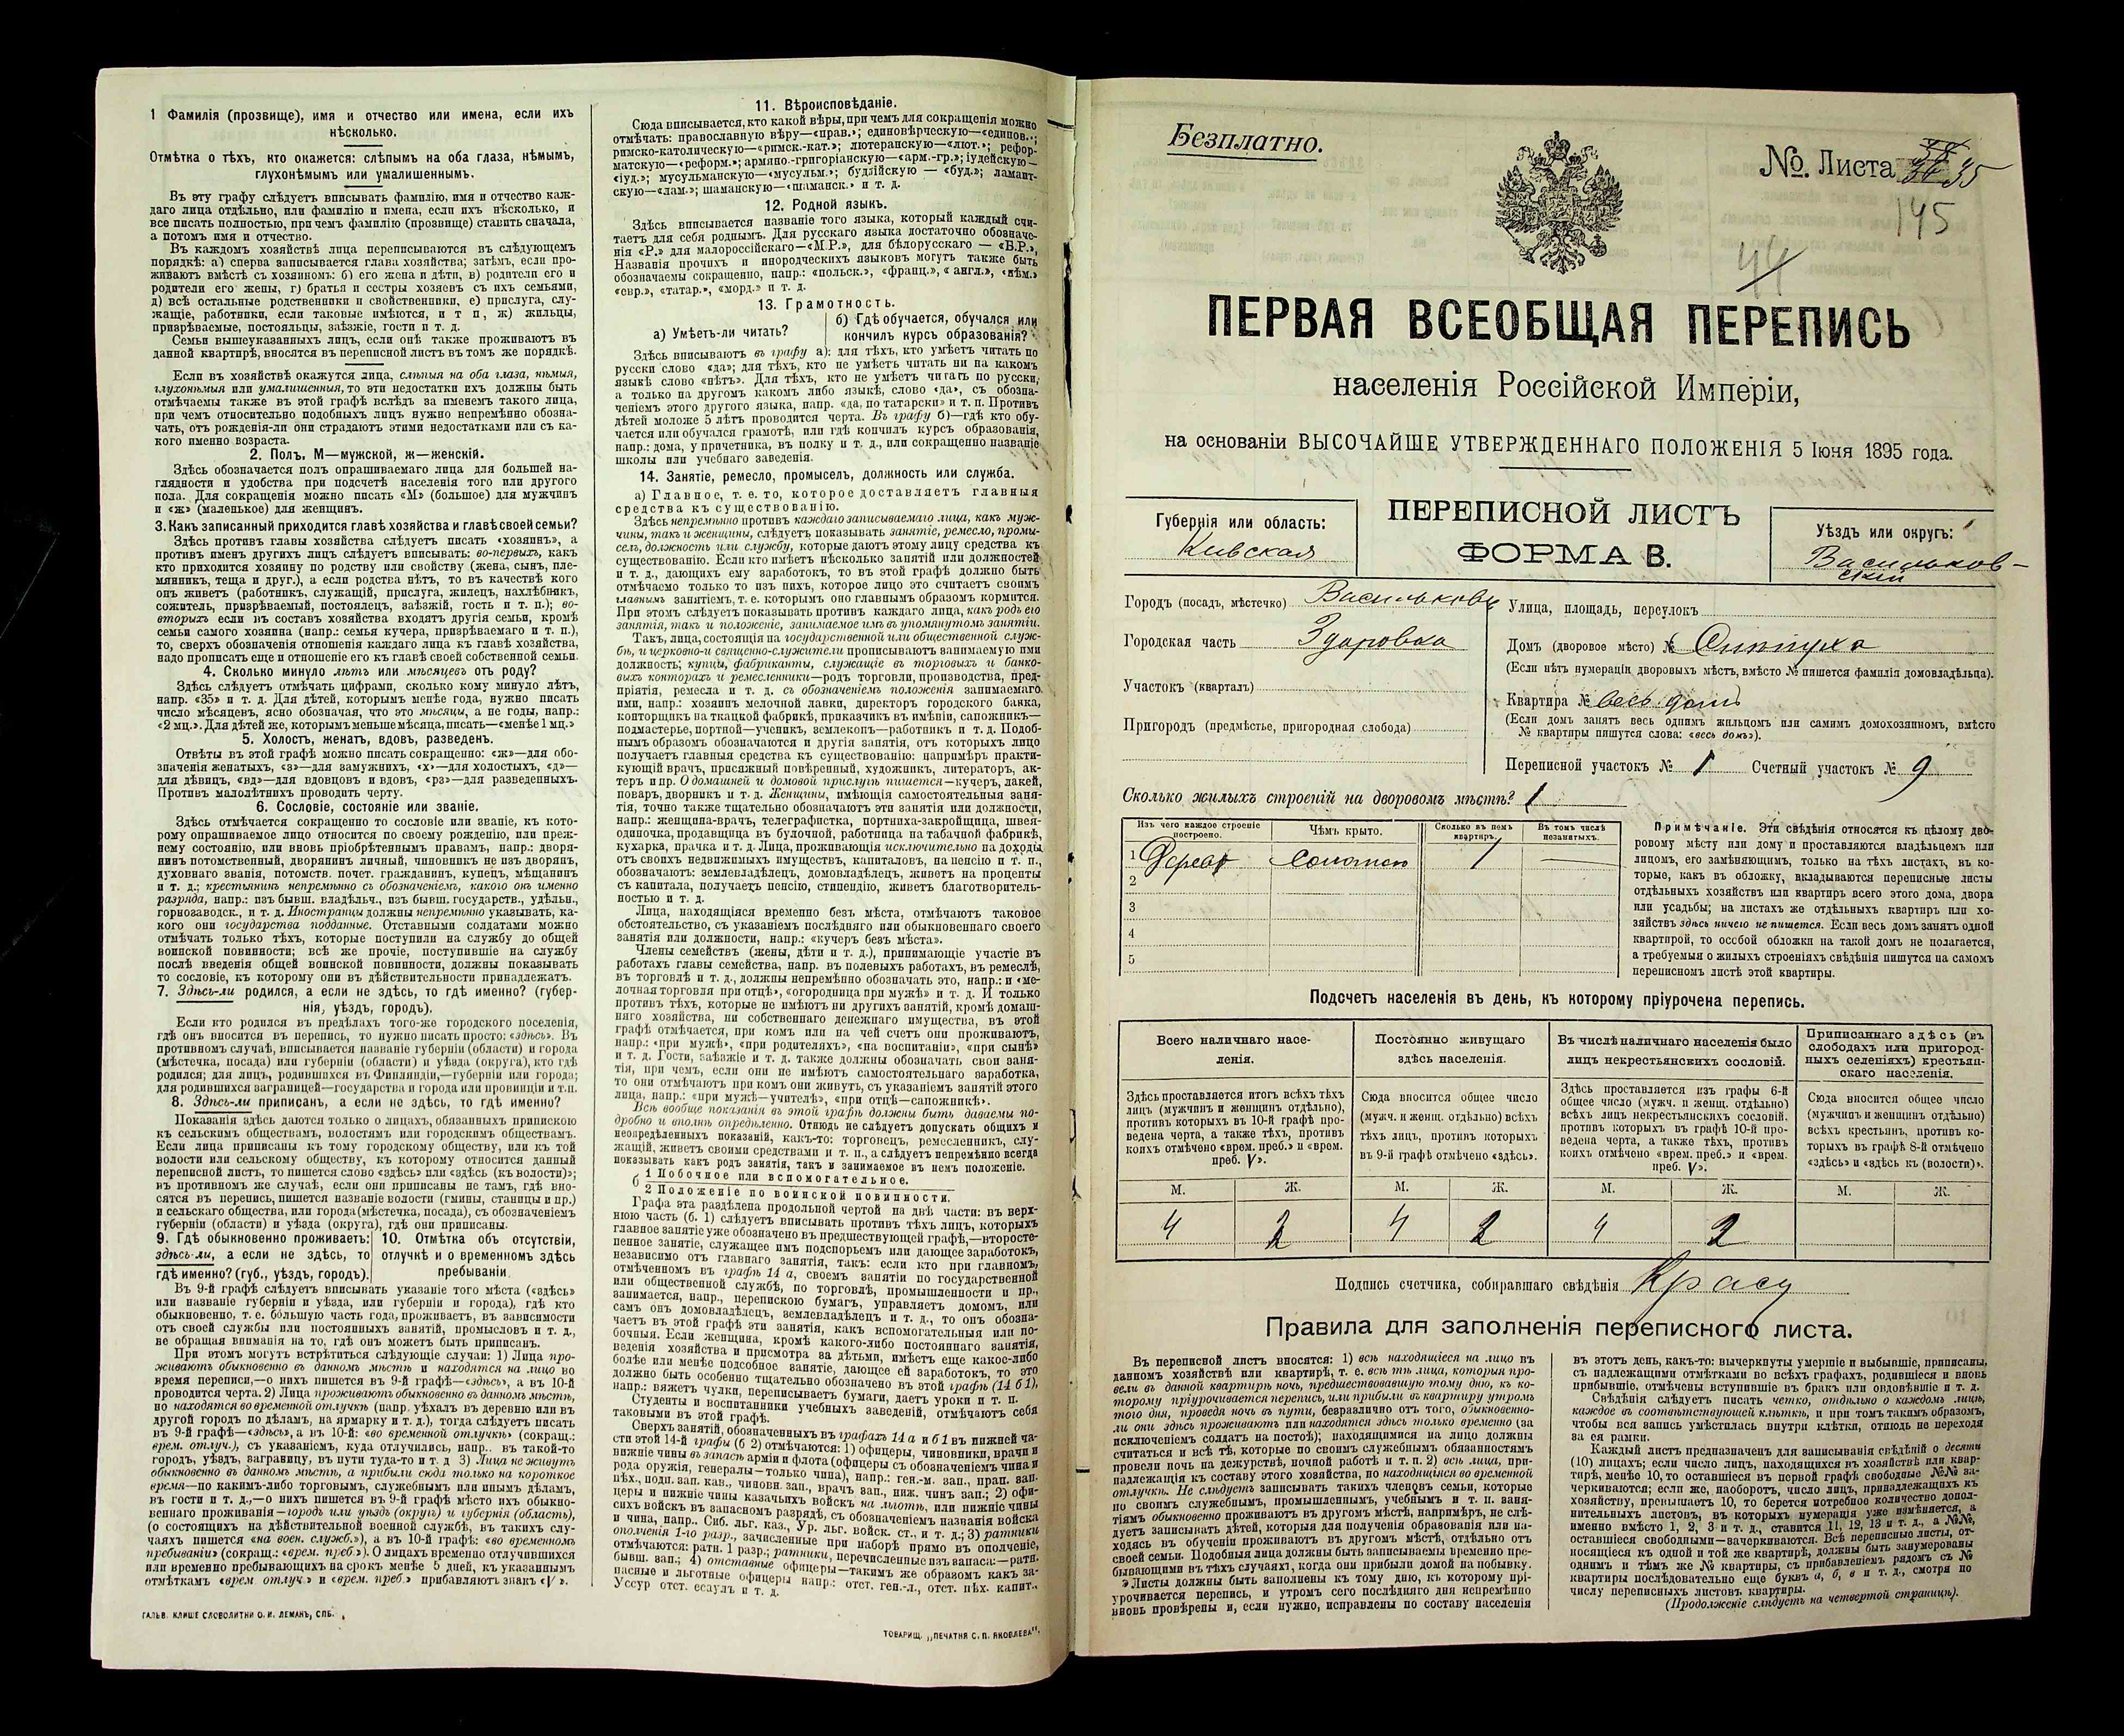 1 Фамилія (прозвище), имя и отчество или имена, если ихъ
нѣсколько.
Отмѣтка о тѣхъ, кто окажется: слѣпымъ на оба глаза, нѣмымъ,
глухонѣмымъ или умалишеннымъ.
Въ эту графу слѣдуетъ вписывать фамилію, имя и отчество каж-
даго лица отдѣльно, или фамилію и имена, если ихъ нѣсколько, и
все писать полностью, при чемъ фамилію (прозвище) ставить сначала,
а потомъ имя и отчество.
Въ каждомъ хозяйствѣ лица переписываются въ слѣдующемъ
порядкѣ: а) сперва записывается глава хозяйства; затѣмъ, если про-
живаютъ вмѣстѣ съ хозяиномъ: б) его жена и дѣти, в) родители его и
родители его жены, г) братья и сестры хозяевъ съ ихъ семьями,
д) всѣ остальные родственники и свойственники, е) прислуга, слу-
жащіе, работники, если таковые имѣются, и т п, ж) жильцы,
призрѣваемые, постояльцы, заѣзжіе, гости и т. д.
Семьи вышеуказанныхъ лицъ, если онѣ также проживаютъ въ
данной квартирѣ, вносятся въ переписной листъ въ томъ же порядкѣ.
Если въ хозяйствѣ окажутся лица, слѣпыя на оба глаза, нѣмыя,
глухонѣмыя или умалишенныя, то эти недостатки ихъ должны быть
отмѣчаемы также въ этой графѣ вслѣдъ за именемъ такого лица,
при чемъ относительно подобныхъ лицъ нужно непремѣнно обозна-
чать, отъ рожденія-ли они страдаютъ этими недостатками или съ ка-
кого именно возраста.
2. Полъ, М—мужской, ж—женскій.
Здѣсь обозначается полъ опрашиваемаго лица для большей на-
глядности и удобства при подсчетѣ населенія того или другого
пола. Для сокращенія можно писать «М» (большое) для мужчинъ
и «ж» (маленькое) для женщинъ.
3. Какъ записанный приходится главѣ хозяйства и главѣ своей семьи?
Здѣсь противъ главы хозяйства слѣдуетъ писать «хозяинъ», а
противъ именъ другихъ лицъ слѣдуетъ вписывать: во-первыхъ, какъ
кто приходится хозяину по родству или свойству (жена, сынъ, пле-
мянникъ, теща и друг.), а если родства нѣтъ, то въ качествѣ кого
онъ живетъ (работникъ, служащій, прислуга, жилецъ, нахлѣбникъ,
сожитель, призрѣваемый, постоялецъ, заѣзжій, гость и т. п.); во-
вторыхъ если въ составъ хозяйства входятъ другія семьи, кромѣ
семьи самого хозяина (напр.: семья кучера, призрѣваемаго и т. п.),
то, сверхъ обозначенія отношенія каждаго лица къ главѣ хозяйства,
надо прописать еще и отношеніе его къ главѣ своей собственной семьи.
4. Сколько минуло лѣтъ или мѣсяцевъ отъ роду?
Здѣсь слѣдуетъ отмѣчать цифрами, сколько кому минуло лѣтъ,
напр. «35» и т. д. Для дѣтей, которымъ менѣе года, нужно писать
число мѣсяцевъ, ясно обозначая, что это мѣсяцы, а не годы, напр.:
«2 мц.». Для дѣтей же, которымъ меньше мѣсяца, писать—«менѣе 1 мц.»
5. Холостъ, женатъ, вдовъ, разведенъ.
Отвѣты въ этой графѣ можно писать сокращенно: «ж»—для обо-
значенія женатыхъ, «з»—для замужнихъ, «х»—для холостыхъ, «д»—
для дѣвицъ, «вд»—для вдовцовъ и вдовъ, «рз»—для разведенныхъ.
Противъ малолѣтнихъ проводить черту.
6. Сословіе, состояніе или званіе.
Здѣсь отмѣчается сокращенно то сословіе или званіе, къ кото-
рому опрашиваемое лицо относится по своему рожденію, или преж-
нему состоянію, или вновь пріобрѣтеннымъ правамъ, напр.: дворя-
нинъ потомственный, дворянинъ личный, чиновникъ не изъ дворянъ,
духовнаго званія, потомств. почет. гражданинъ, купецъ, мѣщанинъ
и т. д.; крестьянинъ непремѣнно съ обозначеніемъ, какого онъ именно
разряда, напр.: изъ бывш. владѣльч., изъ бывш. государств., удѣльн.,
горнозаводск., и т. д. Иностранцы должны непремѣнно указывать, ка-
кого они государства подданные. Отставными солдатами можно
отмѣчать только тѣхъ, которые поступили на службу до общей
воинской повинности; всѣ же прочіе, поступившіе на службу
послѣ введенія общей воинской повинности, должны показывать
то сословіе, къ которому они въ дѣйствительности принадлежатъ.
7. Здѣсь-ли родился, а если не здѣсь, то гдѣ именно? (губер-
нія, уѣздъ, городъ).
Если кто родился въ предѣлахъ того-же городского поселенія,
гдѣ онъ вносится въ перепись, то нужно писать просто: «здѣсь». Въ
противномъ случаѣ, вписывается названіе губерніи (области) и города
(мѣстечка, посада) или губерніи (области) и уѣзда (округа), кто гдѣ
родился; для лицъ, родившихся въ Финляндіи,—губерніи или города;
для родившихся заграницей—государства и города или провинціи и т.п.
8. Здѣсь-ли приписанъ, а если не здѣсь, то гдѣ именно?
Показанія здѣсь даются только о лицахъ, обязанныхъ припискою
къ сельскимъ обществамъ, волостямъ или городскимъ обществамъ.
Если лица приписаны къ тому городскому обществу, или къ той
волости или сельскому обществу, къ которому относится данный
переписной листъ, то пишется слово «здѣсь» или «здѣсь (къ волости)»;
въ противномъ же случаѣ, если они приписаны не тамъ, гдѣ вно-
сятся въ перепись, пишется названіе волости (гмины, станицы и пр.)
и сельскаго общества, или города (мѣстечка, посада), съ обозначеніемъ
губерніи (области) и уѣзда (округа), гдѣ они приписаны.
9. Гдѣ обыкновенно проживаетъ:
здѣсь-ли, а если не здѣсь, то
гдѣ именно? (губ., уѣздъ, городъ).
10. Отмѣтка объ отсутствіи,
отлучкѣ и о временномъ здѣсь
пребываніи
Въ 9-й графѣ слѣдуетъ вписывать указаніе того мѣста («здѣсь»
или названіе губерніи и уѣзда, или губерніи и города), гдѣ кто
обыкновенно, т. е. бо́льшую часть года, проживаетъ, въ зависимости
отъ своей службы или постоянныхъ занятій, промысловъ и т. д.,
не обращая вниманія на то, гдѣ онъ можетъ быть приписанъ.
При этомъ могутъ встрѣтиться слѣдующіе случаи: 1) Лица про-
живаютъ обыкновенно въ данномъ мѣстѣ и находятся на лицо во
время переписи,—о нихъ пишется въ 9-й графѣ—«здѣсь», а въ 10-й
проводится черта. 2) Лица проживаютъ обыкновенно въ данномъ мѣстѣ,
но находятся во временной отлучкѣ (напр. уѣхалъ въ деревню или въ
другой городъ по дѣламъ, на ярмарку и т. д.), тогда слѣдуетъ писать
въ 9-й графѣ—«здѣсь», а въ 10-й: «во временной отлучкѣ» (сокращ.:
врем. отлуч.), съ указаніемъ, куда отлучились, напр.. въ такой-то
городъ, уѣздъ, заграницу, въ пути туда-то и т. д 3) Лица не живутъ
обыкновенно въ данномъ мѣстѣ, а прибыли сюда только на короткое
время—по какимъ-либо торговымъ, служебнымъ или инымъ дѣламъ,
въ гости и т. д.,—о нихъ пишется въ 9-й графѣ мѣсто ихъ обыкно-
веннаго проживанія—городъ или уѣздъ (округъ) и губернія (область),
(о состоящихъ на дѣйствительной военной службѣ, въ такихъ слу-
чаяхъ пишется «на воен. служб.»), а въ 10-й графѣ: «во временномъ
пребываніи» (сокращ.: «врем. преб.»). О лицахъ временно отлучившихся
или временно пребывающихъ на срокъ менѣе 5 дней, къ указаннымъ
отмѣткамъ «врем отлуч.» и «врем. преб.» прибавляютъ знакъ «V ».
ГАЛЬВ. КЛИШЕ СЛОВОЛИТНИ О. И. ЛЕМАНЪ, СПБ.
11. Вѣроисповѣданіе.
Сюда вписывается, кто какой вѣры, при чемъ для сокращенія можно
отмѣчать: православную вѣру—«прав.»; единовѣрческую—«единов.»;
римско-католическую—«римск.-кат.»; лютеранскую—«лют.»; рефор-
матскую—«реформ.»; армяно.-григоріанскую—«арм.-гр.»; іудейскую—
«іуд.»; мусульманскую—«мусульм.»; буддійскую — «буд.»; ламаит-
скую—«лам.»; шаманскую—«шаманск.» и т. д.
12. Родной языкъ.
Здѣсь вписывается названіе того языка, который каждый счи-
таетъ для себя роднымъ. Для русскаго языка достаточно обозначе-
нія «Р.» для малороссійскаго—«М.Р.», для бѣлорусскаго — «Б.Р.».
Названія прочихъ и инородческихъ языковъ могутъ также быть
обозначаемы сокращенно, напр.: «польск.», «франц.», « англ.», «нѣм.»
«евр.», «татар.», «морд.» и т. д.
13. Грамотность.
а) Умѣетъ-ли читать?
б) Гдѣ обучается, обучался или
кончилъ курсъ образованія?
Здѣсь вписываютъ въ графу а): для тѣхъ, кто умѣетъ читать по
русски слово «да»; для тѣхъ, кто не умѣетъ читать ни на какомъ
языкѣ слово «нѣтъ». Для тѣхъ, кто не умѣетъ читать по русски,
а только на другомъ какомъ либо языкѣ, слово «да», съ обозна-
ченіемъ этого другого языка, напр. «да, по татарски» и т. п. Противъ
дѣтей моложе 5 лѣтъ проводится черта. Въ графу б)—гдѣ кто обу-
чается или обучался грамотѣ, или гдѣ кончилъ курсъ образованія,
напр.: дома, у причетника, въ полку и т. д., или сокращенно названіе
школы или учебнаго заведенія.
14. Занятіе, ремесло, промыселъ, должность или служба.
а) Главное, т. е. то, которое доставляетъ главныя
средства къ существованію.
Здѣсь непремѣнно противъ каждаго записываемаго лица, какъ муж-
чины, такъ и женщины, слѣдуетъ показывать занятіе, ремесло, промы-
селъ, должность или службу, которые даютъ этому лицу средства къ
существованію. Если кто имѣетъ нѣсколько занятій или должностей
и т. д., дающихъ ему заработокъ, то въ этой графѣ должно быть
отмѣчаемо только то изъ нихъ, которое лицо это считаетъ своимъ
главнымъ занятіемъ, т. е. которымъ оно главнымъ образомъ кормится.
При этомъ слѣдуетъ показывать противъ каждаго лица, какъ родъ его
занятія, такъ и положеніе, занимаемое имъ въ упомянутомъ занятіи.
Такъ, лица, состоящія на государственной или общественной служ-
бѣ, и церковно-и священно-служители прописываютъ занимаемую ими
должность; купцы, фабриканты, служащіе въ торговыхъ и банко-
выхъ конторахъ и ремесленники—родъ торговли, производства, пред-
пріятія, ремесла и т. д. съ обозначеніемъ положенія занимаемаго
ими, напр.: хозяинъ мелочной лавки, директоръ городского банка,
конторщикъ на ткацкой фабрикѣ, приказчикъ въ имѣніи, сапожникъ—
подмастерье, портной—ученикъ, землекопъ—работникъ и т. д. Подоб-
нымъ образомъ обозначаются и другія занятія, отъ которыхъ лицо
получаетъ главныя средства къ существованію: напримѣръ практи-
кующій врачъ, присяжный повѣренный, художникъ, литераторъ, ак-
теръ и пр. О домашней и домовой прислугѣ пишется—кучеръ, лакей,
поваръ, дворникъ и т. д. Женщины, имѣющія самостоятельныя заня-
тія, точно также тщательно обозначаютъ эти занятія или должности,
напр.: женщина-врачъ, телеграфистка, портниха-закройщица, швея-
одиночка, продавщица въ булочной, работница на табачной фабрикѣ,
кухарка, прачка и т. д. Лица, проживающія исключительно на доходы
отъ своихъ недвижимыхъ имуществъ, капиталовъ, на пенсію и т. п.,
обозначаютъ: землевладѣлецъ, домовладѣлецъ, живетъ на проценты
съ капитала, получаетъ пенсію, стипендію, живетъ благотворитель-
ностью и т. д.
Лица, находящіяся временно безъ мѣста, отмѣчаютъ таковое
обстоятельство, съ указаніемъ послѣдняго или обыкновеннаго своего
занятія или должности, напр.: «кучеръ безъ мѣста».
Члены семействъ (жены, дѣти и т. д.), принимающіе участіе въ
работахъ главы семейства, напр. въ полевыхъ работахъ, въ ремеслѣ,
въ торговлѣ и т. д., должны непремѣнно обозначать это, напр.: и «ме-
лочная торговля при отцѣ», «огородница при мужѣ» и т. д. И только
противъ тѣхъ, которые не имѣютъ ни другихъ занятій, кромѣ домаш-
няго хозяйства, ни собственнаго денежнаго имущества, въ этой
графѣ отмѣчается, при комъ или на чей счетъ они проживаютъ,
напр.: «при мужѣ», «при родителяхъ», «на воспитаніи», «при сынѣ»
и т. д. Гости, заѣзжіе и т. д. также должны обозначать свои заня-
тія, при чемъ, если они не имѣютъ самостоятельнаго заработка,
то они отмѣчаютъ при комъ они живутъ, съ указаніемъ занятій этого
лица, напр.: «при мужѣ—учителѣ», «при отцѣ—сапожникѣ».
Всѣ вообще показанія въ этой графѣ должны быть даваемы по-
дробно и вполнѣ опредѣленно. Отнюдь не слѣдуетъ допускать общихъ и
неопредѣленныхъ показаній, какъ-то: торговецъ, ремесленникъ, слу-
жащій, живетъ своими средствами и т. п., а слѣдуетъ непремѣнно всегда
показывать какъ родъ занятія, такъ и занимаемое въ немъ положеніе.
б 1 Побочное или вспомогательное.
2 Положеніе по воинской повинности.
Графа эта раздѣлена продольной чертой на двѣ части: въ верх-
нюю часть (б. 1) слѣдуетъ вписывать противъ тѣхъ лицъ, которыхъ
главное занятіе уже обозначено въ предшествующей графѣ,—второсте-
пенное занятіе, служащее имъ подспорьемъ или дающее заработокъ,
независимо отъ главнаго занятія, такъ: если кто при главномъ,
отмѣченномъ въ графѣ 14 а, своемъ занятіи по государственной
или общественной службѣ, по торговлѣ, промышленности и пр.,
занимается, напр., перепискою бумагъ, управляетъ домомъ, или
самъ онъ домовладѣлецъ, землевладѣлецъ и т. д., то онъ обозна-
чаетъ въ этой графѣ эти занятія, какъ вспомогательныя или по-
бочныя. Если женщина, кромѣ какого-либо постояннаго занятія,
веденія хозяйства и присмотра за дѣтьми, имѣетъ еще какое-либо
болѣе или менѣе подсобное занятіе, дающее ей заработокъ, то это
должно быть особенно тщательно обозначено въ этой графѣ (14 б 1),
напр.: вяжетъ чулки, переписываетъ бумаги, даетъ уроки и т. п.
Студенты и воспитанники учебныхъ заведеній, отмѣчаютъ себя
таковыми въ этой графѣ.
Сверхъ занятій, обозначенныхъ въ графахъ 14 а и б 1 въ нижней ча-
сти этой 14-й графы (б 2) отмѣчаются: 1) офицеры, чиновники, врачи и
нижніе чины въ запасѣ арміи и флота (офицеры съ обозначеніемъ чина и
рода оружія, генералы—только чина), напр.: ген.-м. зап., прап. зап.
пѣх., подп. зап. кав., чиновн. зап., врачъ зап., ниж. чинъ зап.; 2) офи-
церы и нижніе чины казачьихъ войскъ на льготѣ, или нижніе чины
сихъ войскъ въ запасномъ разрядѣ, съ обозначеніемъ названія войска
и чина, напр.. Сиб. льг. каз., Ур. льг. войск. ст., и т. д.; 3) ратники
ополченія 1-го разр., зачисленные при наборѣ прямо въ ополченіе,
отмѣчаются: ратн. 1 разр.; ратники, перечисленные изъ запаса:—ратн.
бывш. зап.; 4) отставные офицеры—такимъ же образомъ какъ за-
пасные и льготные офицеры напр.: отст. ген.-л., отст. пѣх. капит.,
Уссур отст. есаулъ и т. д.
ТОВАРИЩ. „ПЕЧАТНЯ С. П. ЯКОВЛЕВА".
Безплатно.
№. Листа 35
145
44
ПЕРВАЯ ВСЕОБЩАЯ ПЕРЕПИСЬ
населенія Россійской Имперіи,
на основаніи ВЫСОЧАЙШЕ УТВЕРЖДЕННАГО ПОЛОЖЕНІЯ 5 Іюня 1895 года.
Губернія или область:
Кіевская
ПЕРЕПИСНОЙ ЛИСТЪ
ФОРМА В.
Уѣздъ или округъ:
Васильков-
скій
Городъ (посадъ, мѣстечко) Васильковъ
Городская часть Здоровка
Участокъ (кварталъ)
Пригородъ (предмѣстье, пригородная слобода)
Улица, площадь, переулокъ
Домъ (дворовое мѣсто) №
(Если нѣтъ нумераціи дворовыхъ мѣстъ, вмѣсто № пишется фамилія домовладѣльца).
Квартира № весь домъ
(Если домъ занятъ весь однимъ жильцомъ или самимъ домохозяиномъ, вмѣсто
№ квартиры пишутся слова: «весь домъ»).
Переписной участокъ № 1 Счетный участокъ № 9
Сколько жилыхъ строеній на дворовомъ мѣстѣ? 1
Изъ чего каждое строеніе построено.
Чѣмъ крыто.
Сколько въ немъ квартиръ.
Въ томъ числѣ незанятыхъ.
1 Дерево Соломою 1 —
2
3
4
5
Примѣчаніе. Эти свѣдѣнія относятся къ цѣлому дво-
ровому мѣсту или дому и проставляются владѣльцемъ или
лицомъ, его замѣняющимъ, только на тѣхъ листахъ, въ ко-
торые, какъ въ обложку, вкладываются переписные листы
отдѣльныхъ хозяйствъ или квартиръ всего этого дома, двора
или усадьбы; на листахъ же отдѣльныхъ квартиръ или хо-
зяйствъ здѣсь ничего не пишется. Если весь домъ занятъ одной
квартирой, то особой обложки на такой домъ не полагается,
а требуемыя о жилыхъ строеніяхъ свѣдѣнія пишутся на самомъ
переписномъ листѣ этой квартиры.
Подсчетъ населенія въ день, къ которому пріурочена перепись.
Всего наличнаго насе-
ленія.
Здѣсь проставляется итогъ всѣхъ тѣхъ
лицъ (мужчинъ и женщинъ отдѣльно),
противъ которыхъ въ 10-й графѣ про-
ведена черта, а также тѣхъ, противъ
коихъ отмѣчено «врем. преб.» и «врем.
преб. V».
Постоянно живущаго
здѣсь населенія.
Сюда вносится общее число
(мужч. и женщ. отдѣльно) всѣхъ
тѣхъ лицъ, противъ которыхъ
въ 9-й графѣ отмѣчено «здѣсь».
Въ числѣ наличнаго населенія было
лицъ некрестьянскихъ сословій.
Здѣсь проставляется изъ графы 6-й
общее число (мужч. и женщ. отдѣльно)
всѣхъ лицъ некрестьянскихъ сословій.
противъ которыхъ въ графѣ 10-й про-
ведена черта, а также тѣхъ, противъ
коихъ отмѣчено «врем. преб.» и «врем.
преб. V».
Приписаннаго здѣсь (въ
слободахъ или пригород-
ныхъ селеніяхъ) крестьян-
скаго населенія.
Сюда вносится общее число
(мужчинъ и женщинъ отдѣльно)
всѣхъ крестьянъ, противъ ко-
торыхъ въ графѣ 8-й отмѣчено
«здѣсь» и «здѣсь къ (волости)».
М. Ж. М. Ж. М. Ж. М. Ж.
4 2 4 2 4 2
Подпись счетчика, собиравшаго свѣдѣнія
Правила для заполненія переписного листа.
Въ переписной листъ вносятся: 1) всѣ находящіеся на лицо въ
данномъ хозяйствѣ или квартирѣ, т. е. всѣ тѣ лица, которыя про-
вели въ данной квартирѣ ночь, предшествовавшую тому дню, къ ко-
торому пріурочивается перепись, или прибыли въ квартиру утромъ
того дня, проведя ночь въ пути, безразлично отъ того, обыкновенно-
ли они здѣсь проживаютъ или находятся здѣсь только временно (за
исключеніемъ солдатъ на постоѣ); находящимися на лицо должны
считаться и всѣ тѣ, которые по своимъ служебнымъ обязанностямъ
провели ночь на дежурствѣ, ночной работѣ и т. п. 2) всѣ лица, при-
надлежащія къ составу этого хозяйства, но находящіяся во временной
отлучкѣ. Не слѣдуетъ записывать такихъ членовъ семьи, которые
по своимъ служебнымъ, промышленнымъ, учебнымъ и т. п. заня-
тіямъ обыкновенно проживаютъ въ другомъ мѣстѣ, напримѣръ, не слѣ-
дуетъ записывать дѣтей, которыя для полученія образованія или на-
ходясь въ обученіи проживаютъ въ другомъ мѣстѣ, отдѣльно отъ
своей семьи. Подобныя лица должны быть записываемы временно пре-
бывающими въ тѣхъ случаяхъ, когда они прибыли домой на побывку.
Листы должны быть заполнены къ тому дню, къ которому прі-
урочивается перепись, и утромъ сего послѣдняго дня непремѣнно
вновь провѣрены и, если нужно, исправлены по составу населенія
въ этотъ день, какъ-то: вычеркнуты умершіе и выбывшіе, приписаны,
съ надлежащими отмѣтками во всѣхъ графахъ, родившіеся и вновь
прибывшіе, отмѣчены вступившіе въ бракъ или овдовѣвшіе и т. д.
Свѣдѣнія слѣдуетъ писать четко, отдѣльно о каждомъ лицѣ,
каждое въ соотвѣтствующей клѣткѣ, и при томъ такимъ образомъ,
чтобы вся запись умѣстилась внутри клѣтки, отнюдь не переходя
за ея рамки.
Каждый листъ предназначенъ для записыванія свѣдѣній о десяти
(10) лицахъ; если число лицъ, находящихся въ хозяйствѣ или квар-
тирѣ, менѣе 10, то оставшіеся въ первой графѣ свободные №№ за-
черкиваются; если же, наоборотъ, число лицъ, принадлежащихъ къ
хозяйству, превышаетъ 10, то берется потребное количество допол-
нительныхъ листовъ, въ которыхъ нумерація уже измѣняется, а
именно вмѣсто 1, 2, 3 и т. д., ставится 11, 12, 13 и т. д., а №№,
оставшіеся свободными—вачеркиваются. Всѣ переписные листы, от-
носящіеся къ одной и той же квартирѣ, должны быть занумерованы
однимъ и тѣмъ же № квартиры, съ прибавленіемъ рядомъ съ №
квартиры послѣдовательно еще буквъ а, б, в и т. д., смотря по
числу переписныхъ листовъ квартиры.
(Продолженіе слѣдуетъ на четвертой страницѣ).